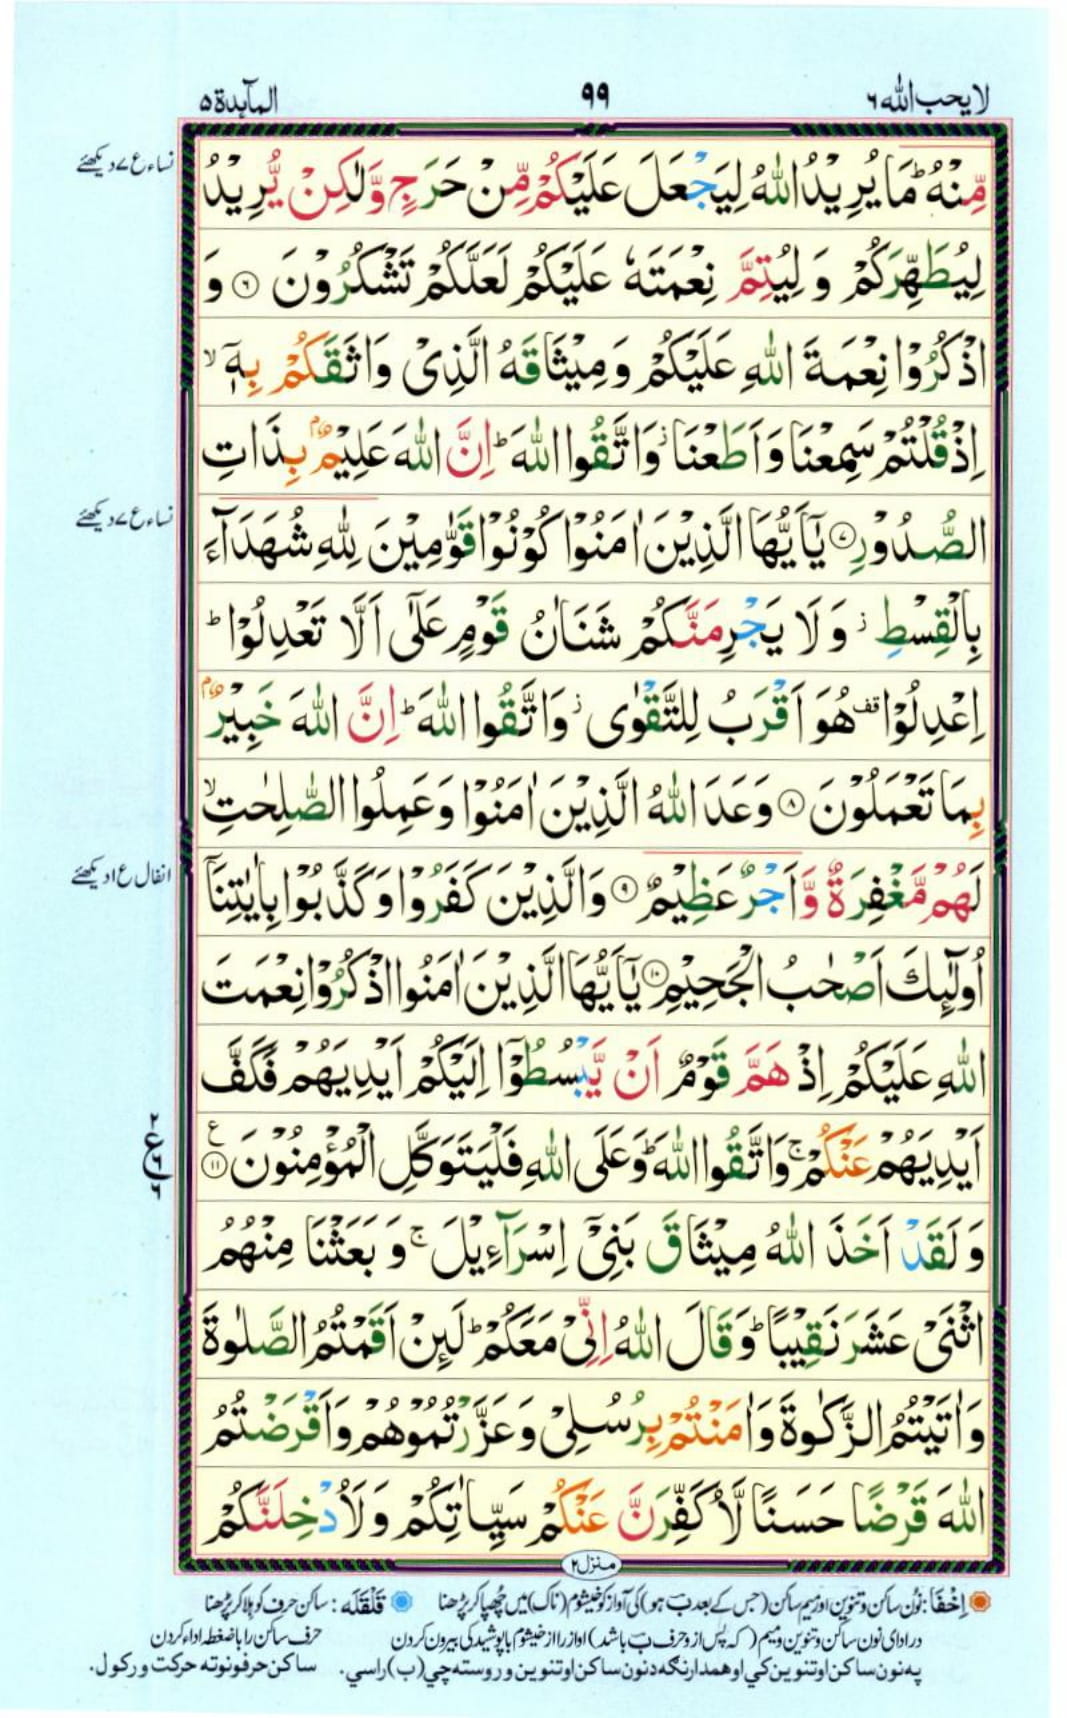 لا يحب الله ٦
٩٩
المآئدة ٥
مِّنْهُ ؕ مَا يُرِيْدُ اللّٰهُ لِيَجْعَلَ عَلَيْكُمْ مِّنْ حَرَجٍ وَّلٰكِنْ يُّرِيْدُ
نساء ع ٧ دیکھئے
لِيُطَهِّرَكُمْ وَ لِيُتِمَّ نِعْمَتَهٗ عَلَيْكُمْ لَعَلَّكُمْ تَشْكُرُوْنَ ۝٦ وَ
اذْكُرُوْا نِعْمَةَ اللّٰهِ عَلَيْكُمْ وَمِيْثَاقَهُ الَّذِىْ وَاثَقَكُمْ بِهٖۤ ۙ
اِذْ قُلْتُمْ سَمِعْنَا وَاَطَعْنَا ؗ وَاتَّقُوا اللّٰهَ ؕ اِنَّ اللّٰهَ عَلِيْمٌۢ بِذَاتِ
الصُّدُوْرِ ۝٧ يٰۤاَيُّهَا الَّذِيْنَ اٰمَنُوْا كُوْنُوْا قَوّٰمِيْنَ لِلّٰهِ شُهَدَآءَ
نساء ع ٧ دیکھئے
بِالْقِسْطِ ؗ وَلَا يَجْرِمَنَّكُمْ شَنَاٰنُ قَوْمٍ عَلٰۤى اَلَّا تَعْدِلُوْا ؕ
اِعْدِلُوْا قف هُوَ اَقْرَبُ لِلتَّقْوٰى ؗ وَاتَّقُوا اللّٰهَ ؕ اِنَّ اللّٰهَ خَبِيْرٌۢ
بِمَا تَعْمَلُوْنَ ۝٨ وَعَدَ اللّٰهُ الَّذِيْنَ اٰمَنُوْا وَعَمِلُوا الصّٰلِحٰتِ ۙ
لَهُمْ مَّغْفِرَةٌ وَّاَجْرٌ عَظِيْمٌ ۝٩ وَالَّذِيْنَ كَفَرُوْا وَكَذَّبُوْا بِاٰيٰتِنَاۤ
انفال ع ١ دیکھئے
اُولٰٓئِكَ اَصْحٰبُ الْجَحِيْمِ ۝١٠ يٰۤاَيُّهَا الَّذِيْنَ اٰمَنُوا اذْكُرُوْا نِعْمَتَ
اللّٰهِ عَلَيْكُمْ اِذْ هَمَّ قَوْمٌ اَنْ يَّبْسُطُوْۤا اِلَيْكُمْ اَيْدِيَهُمْ فَكَفَّ
اَيْدِيَهُمْ عَنْكُمْ ۚ وَاتَّقُوا اللّٰهَ ؕ وَعَلَى اللّٰهِ فَلْيَتَوَكَّلِ الْمُؤْمِنُوْنَ ۝١١ ع
٢ ع ٦ ٦
وَلَقَدْ اَخَذَ اللّٰهُ مِيْثَاقَ بَنِىْۤ اِسْرَآءِيْلَ ۚ وَبَعَثْنَا مِنْهُمُ
اثْنَىْ عَشَرَ نَقِيْبًا ؕ وَقَالَ اللّٰهُ اِنِّىْ مَعَكُمْ ؕ لَئِنْ اَقَمْتُمُ الصَّلٰوةَ
وَاٰتَيْتُمُ الزَّكٰوةَ وَاٰمَنْتُمْ بِرُسُلِىْ وَعَزَّرْتُمُوْهُمْ وَاَقْرَضْتُمُ
اللّٰهَ قَرْضًا حَسَنًا لَّاُكَفِّرَنَّ عَنْكُمْ سَيِّاٰتِكُمْ وَلَاُدْخِلَنَّكُمْ
منزل ٢
اِخْفَا : نُون ساکن و تنوین اور میم ساکن (جس کے بعد ب ہو) کی آواز کو خیشوم (ناک) میں چھپا کر پڑھنا قَلْقَلَه : ساکن حرف کو ہلا کر پڑھنا
در ادای نون ساکن و تنوین و میم (که پس از و حرف ب باشد) آواز را از خیشوم با پوشیدگی بیرون کردن حرف ساکن را با ضغطه اداء کردن
په نون ساکن او تنوین کي او همدا رنګه د نون ساکن او تنوین و روسته چي (ب) راسي. ساکن حرفونو ته حرکت ورکول.